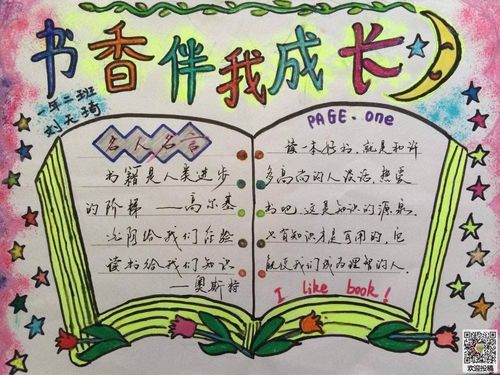 书香伴我成长
一年二班
刘天琦
名人名言
书籍是人类进步
的阶梯——高尔基
光阴给我们经验
读书给我们知识
——奥斯特
PAGE. one
读一本好书,就是和许
多高尚的人谈话,热爱
书吧,这是知识的源泉.
只有知识才是可用的,它
能使我们成为理智的人.
I like book!
欢迎投稿